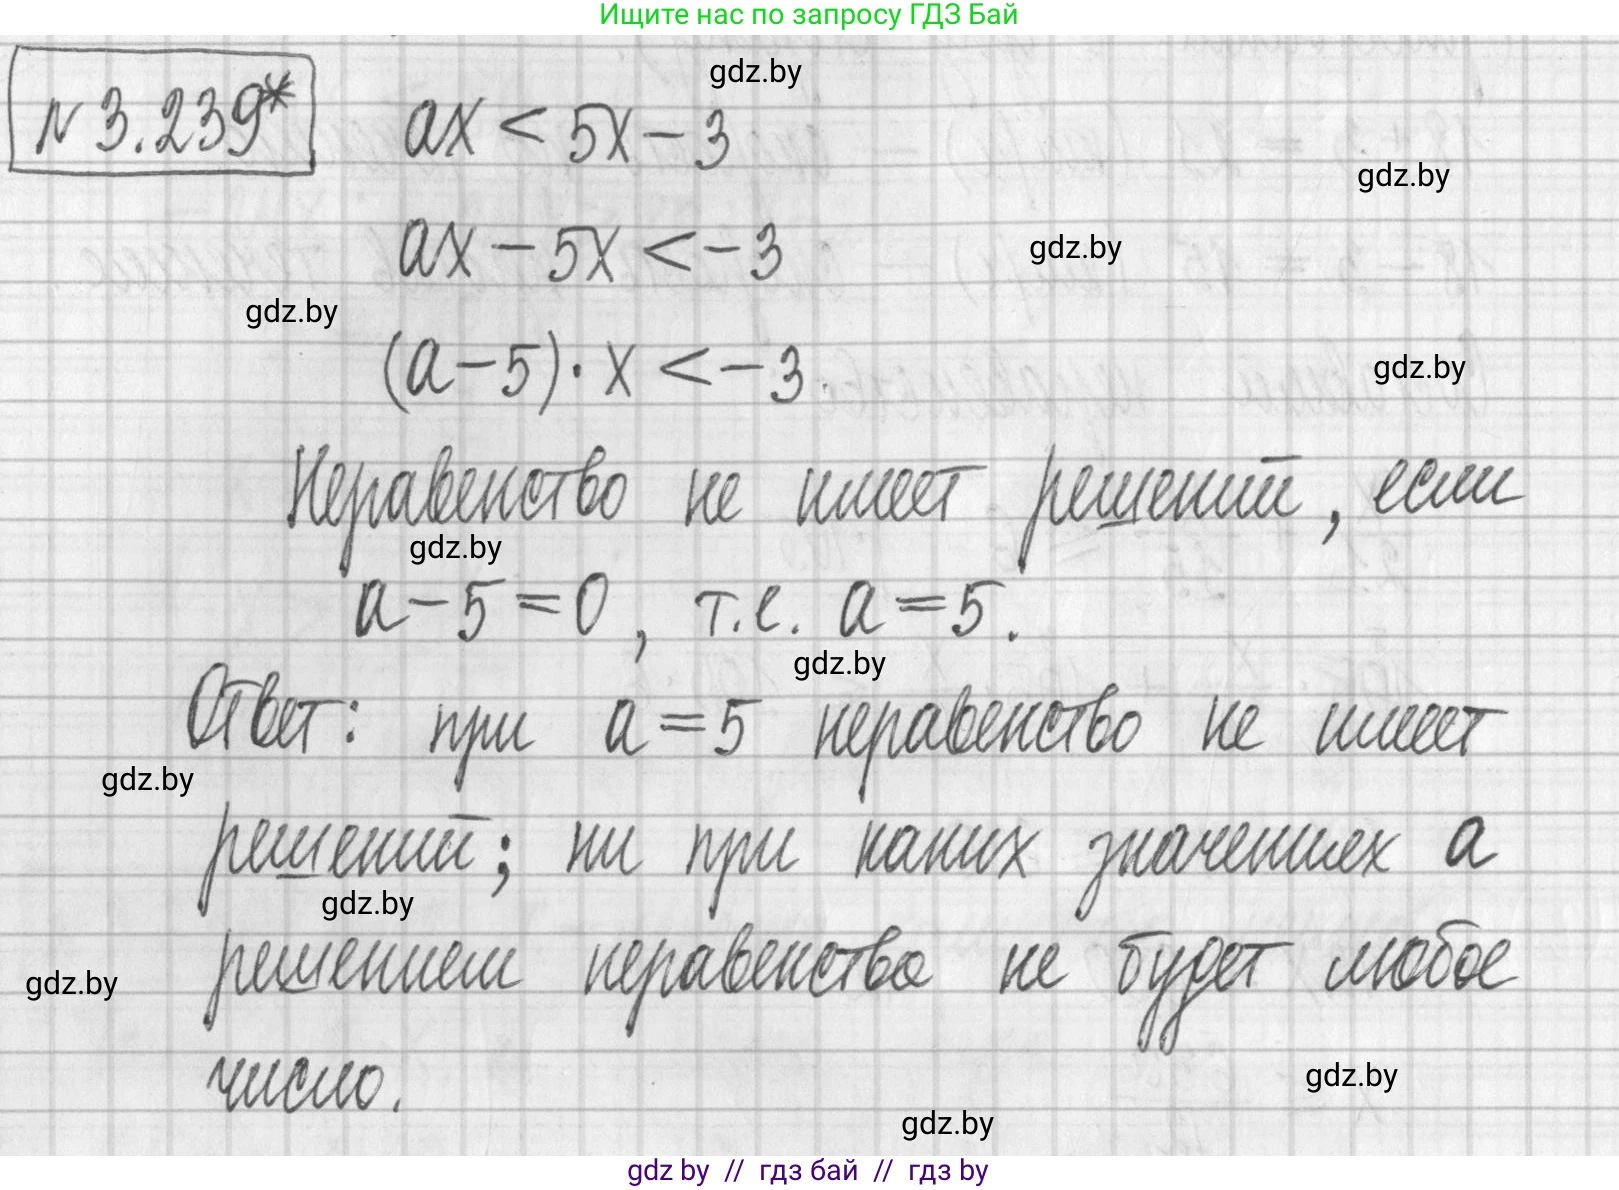 Ищите нас по запросу ГДЗ Бай
gdz.by
N 3.239*
ax < 5x - 3
gdz.by
ax - 5x < -3
gdz.by
gdz.by
(a-5)·x < -3.
gdz.by
Неравенство не имеет решений, если
gdz.by
a-5=0, т.е. a=5.
gdz.by
Ответ: при a=5 неравенство не имеет
gdz.by
решений; ни при каких значениях a
gdz.by
решением неравенства не будет любое
gdz.by
число.
gdz.by
gdz.by
gdz by // гдз бай // gdz by